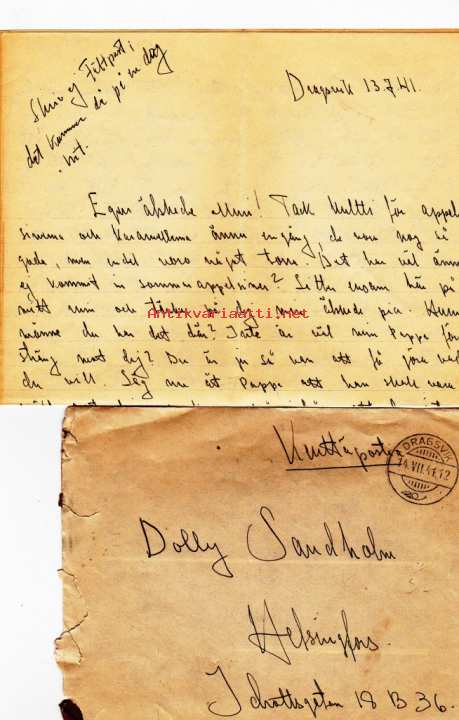 Skriv ej Fältpost i
det kommer di på en dag
hit.
Dragsvik 13.7.41.
Egen älskede Mum! Tack kultti för appel
sinerna och karamellerna ännu en gång de voro nog så
goda, men endel voro något torra. Det har väl ännu
ej kommit in sommarappelsiner? Sitter ensam här på
mitt rum och tänker på dig min älskede pia. Hur
månne du har det där? Inte är väl min Pappa för
sträng mot dig? Du är ju så van att få göra vad
du vill. Säg nu åt Pappa att han skall vara
Antikvariaatti.net
Kenttäpostia
DRAGSVIK
14.VII.41.12
Dolly Sandholm
Helsingfors.
Idrottsgatan 18 B 36.